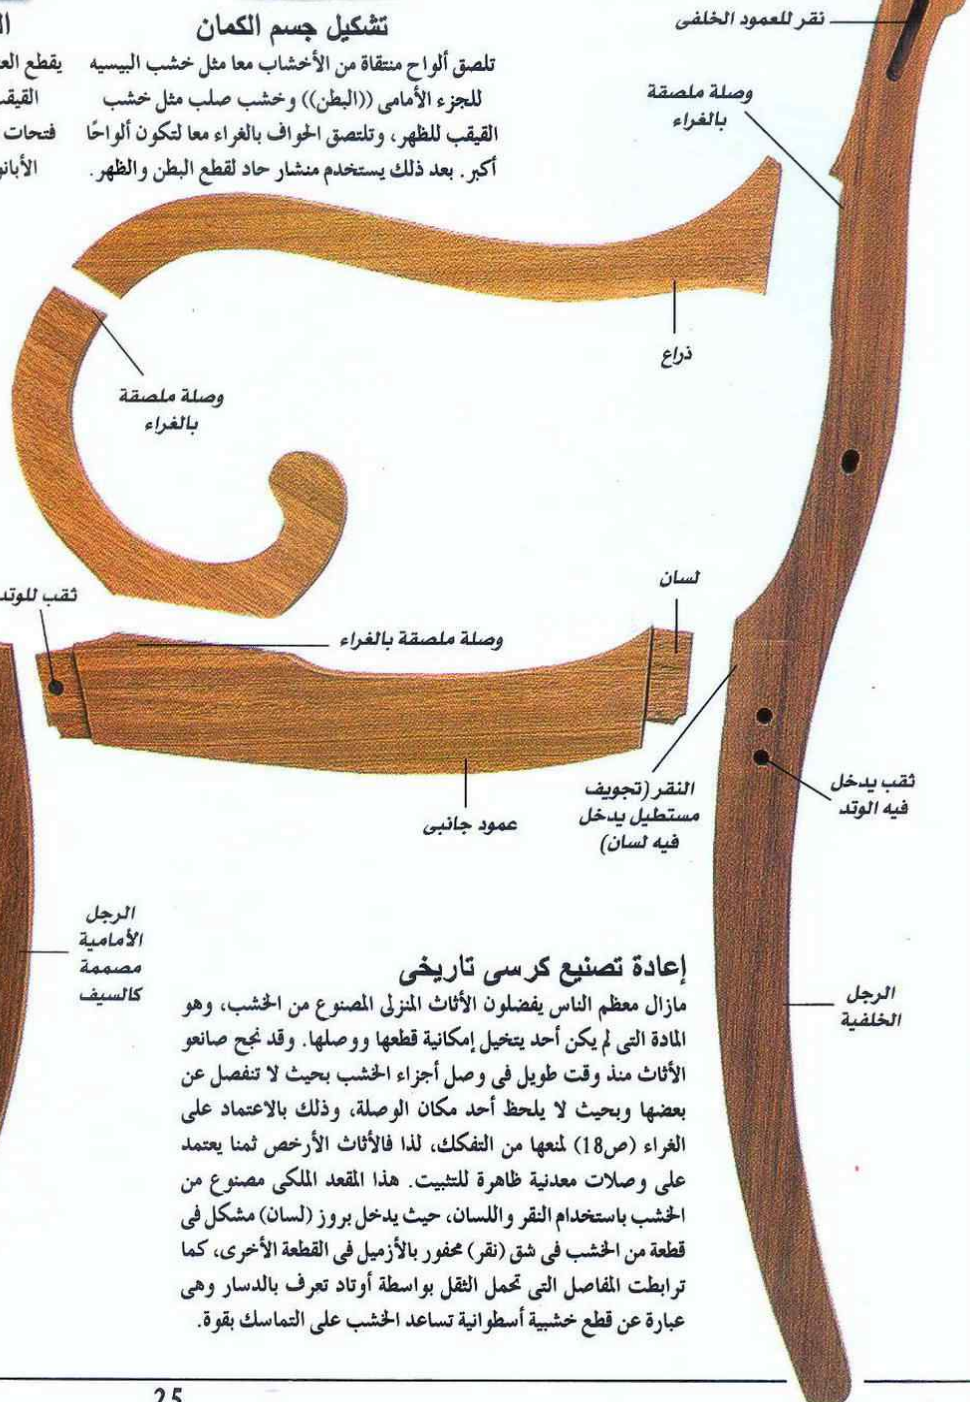 تشكيل جسم الكمان
تلصق ألواح منتقاة من الأخشاب معا مثل خشب البيسيه
للجزء الأمامى ((البطن)) وخشب صلب مثل خشب
القيقب للظهر، وتلتصق الحواف بالغراء معا لتكون ألواحًا
أكبر. بعد ذلك يستخدم منشار حاد لقطع البطن والظهر.
يقطع
فتحات
نقر للعمود الخلفى
وصلة ملصقة
بالغراء
ذراع
وصلة ملصقة
بالغراء
لسان
ثقب للوتد
وصلة ملصقة بالغراء
النقر (تجويف
مستطيل يدخل
فيه لسان)
ثقب يدخل
فيه الوتد
عمود جانبى
الرجل
الأمامية
مصممة
كالسيف
الرجل
الخلفية
إعادة تصنيع كرسى تاريخى
مازال معظم الناس يفضلون الأثاث المنزلى المصنوع من الخشب، وهو
المادة التى لم يكن أحد يتخيل إمكانية قطعها ووصلها. وقد نجح صانعو
الأثاث منذ وقت طويل فى وصل أجزاء الخشب بحيث لا تنفصل عن
بعضها وبحيث لا يلحظ أحد مكان الوصلة، وذلك بالاعتماد على
الغراء (ص18) لمنعها من التفكك، لذا فالأثاث الأرخص ثمنا يعتمد
على وصلات معدنية ظاهرة للتثبيت. هذا المقعد الملكى مصنوع من
الخشب باستخدام النقر واللسان، حيث يدخل بروز (لسان) مشكل فى
قطعة من الخشب فى شق (نقر) محفور بالأزميل فى القطعة الأخرى، كما
ترابطت المفاصل التى تحمل الثقل بواسطة أوتاد تعرف بالدسار وهى
عبارة عن قطع خشبية أسطوانية تساعد الخشب على التماسك بقوة.
25